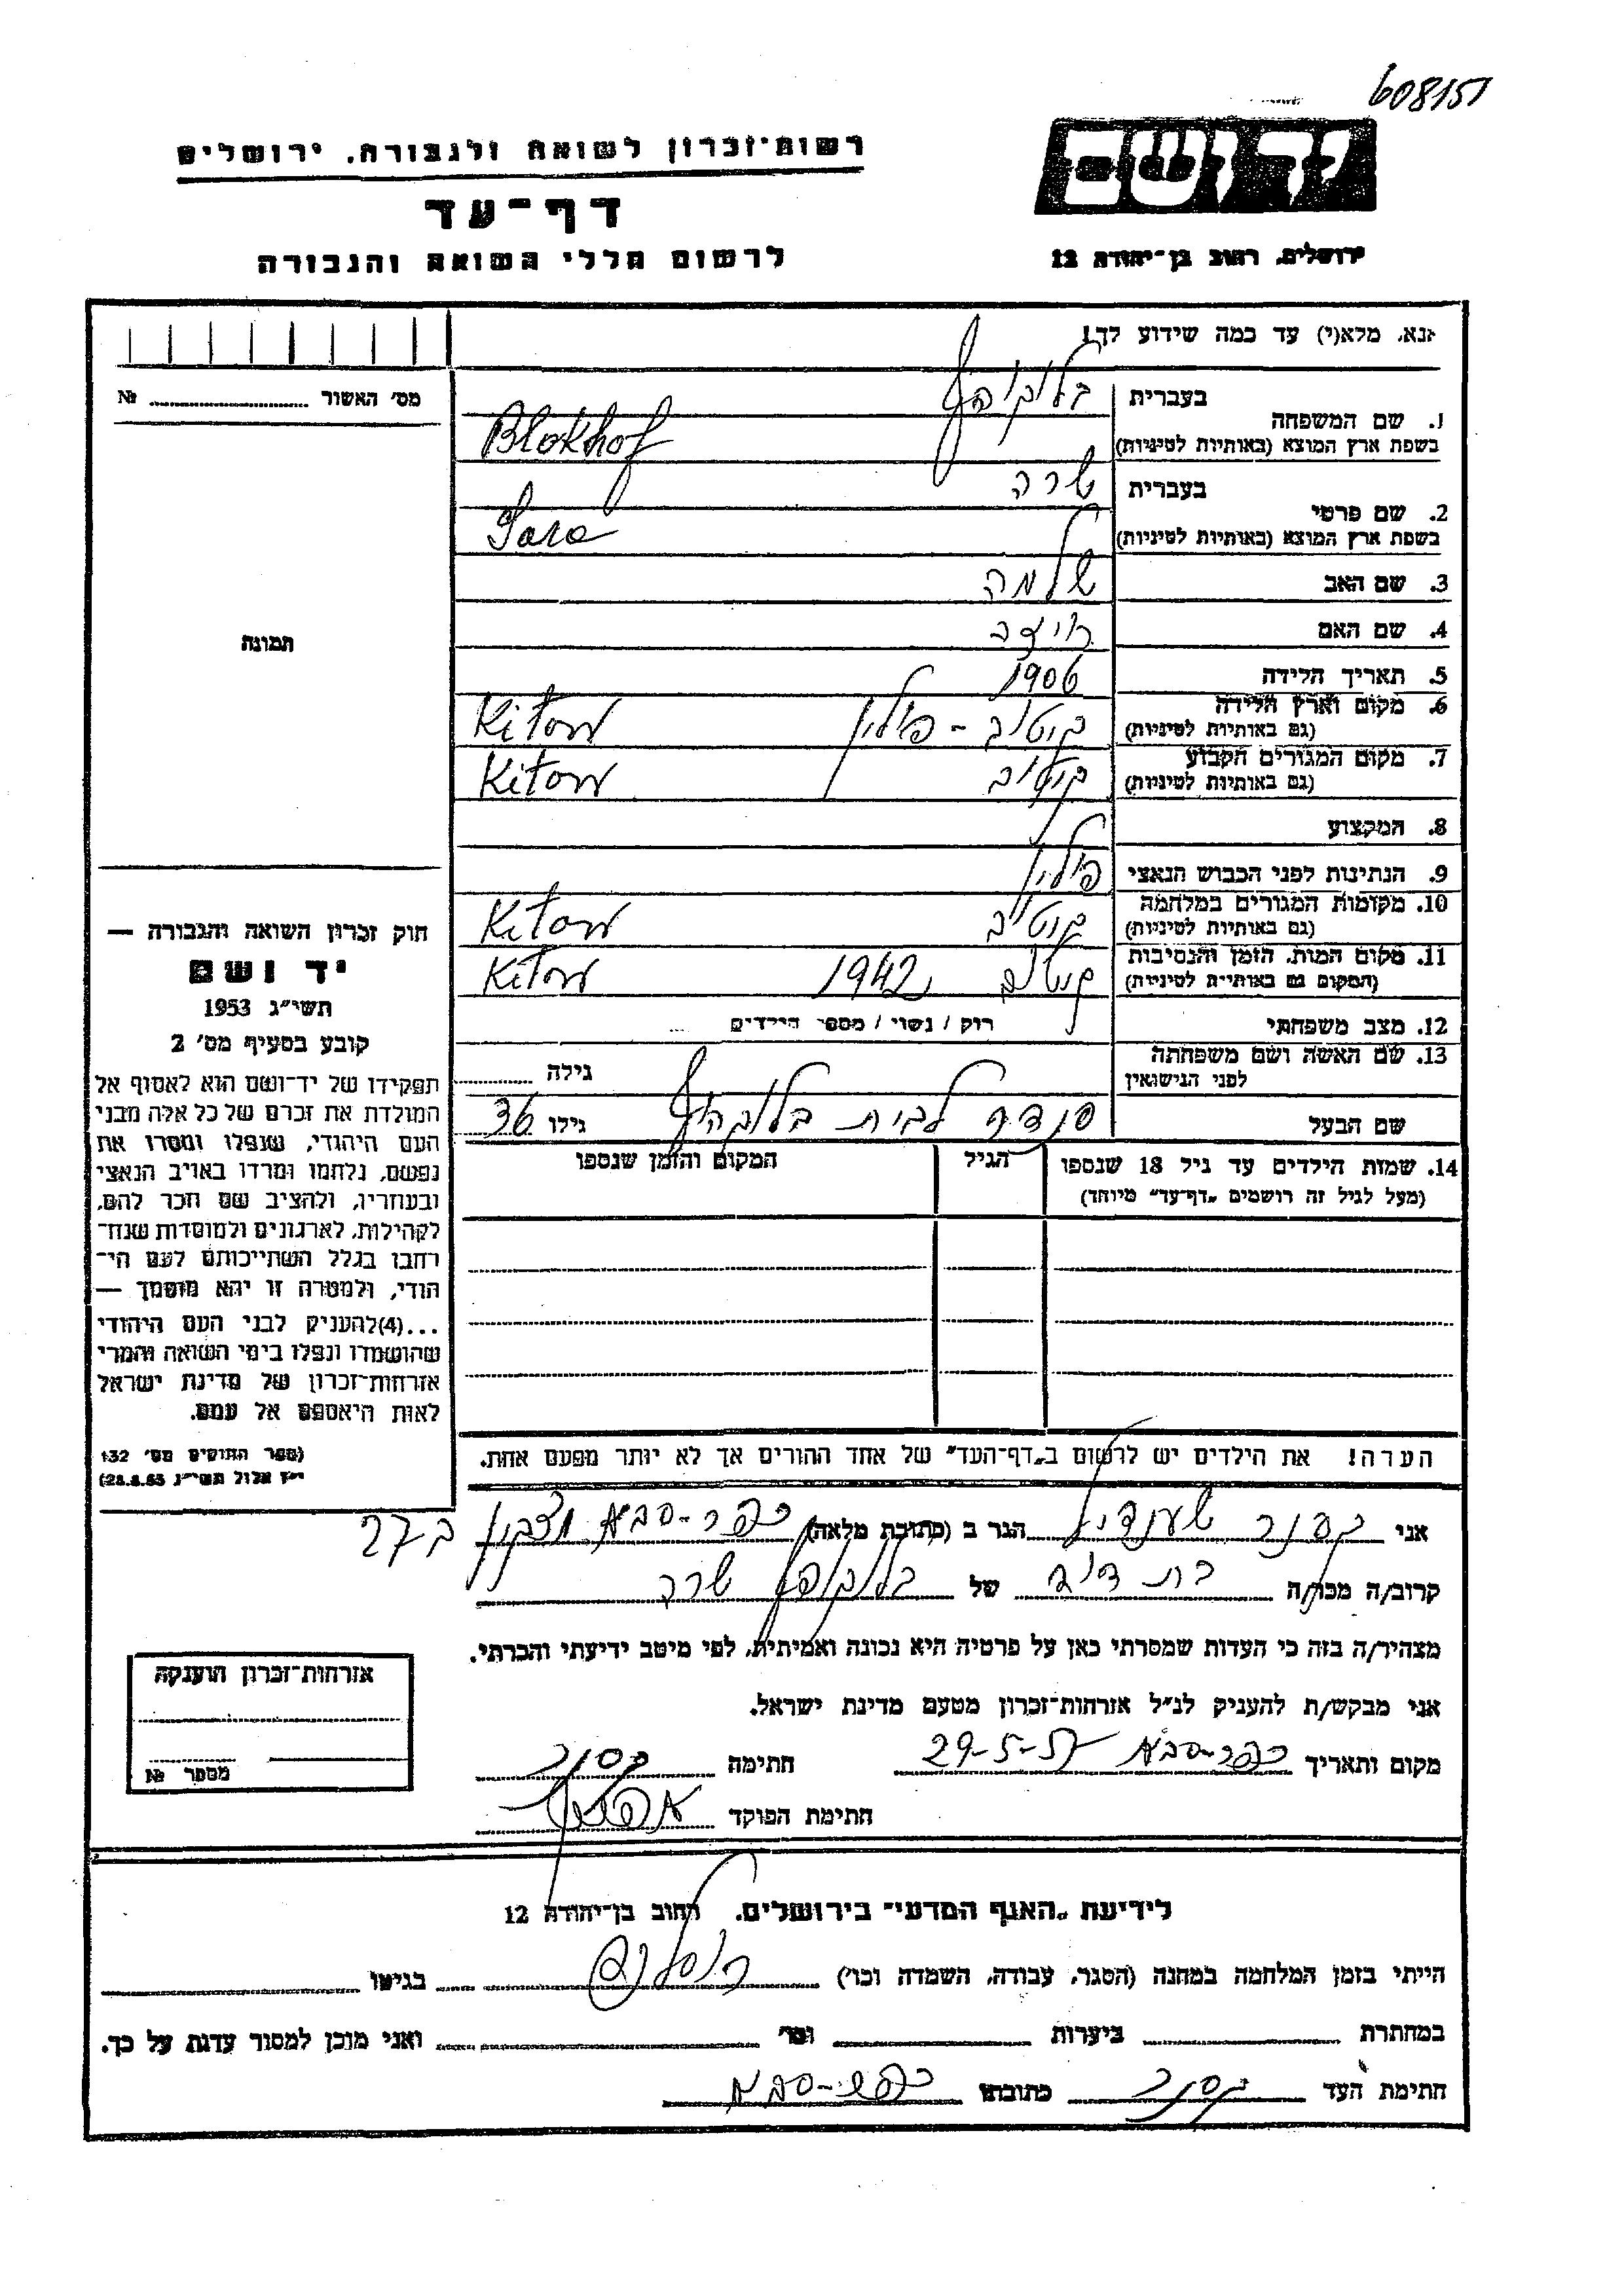 608151
יד ושם
רשות־זכרון לשואה ולגבורה, ירושלים
דף־עד
לרשום חללי השואה והגבורה
ירושלים, רחוב בן־יהודה 12
נא, מלא(י) עד כמה שידוע לך!
מס' האשור № 
1. שם המשפחה בעברית בלוקהוף
בשפת ארץ המוצא (באותיות לטיניות) Blokhof
2. שם פרטי בעברית שרה
בשפת ארץ המוצא (באותיות לטיניות) Sara
3. שם האב שלמה
4. שם האם
5. תאריך הלידה 1906
6. מקום וארץ הלידה (גם באותיות לטיניות) קיטוב - פולין Kitow
7. מקום המגורים הקבוע (גם באותיות לטיניות) קיטוב Kitow
8. המקצוע
9. הנתינות לפני הכבוש הנאצי פולין
10. מקומות המגורים במלחמה (גם באותיות לטיניות) קיטוב Kitow
11. מקום המות, הזמן והנסיבות (המקום גם באותיות לטיניות) קיטוב 1942 Kitow
12. מצב משפחתי רוק / נשוי / מספר הילדים
13. שם האשה ושם משפחתה לפני הנישואין גילה
שם הבעל לבית בלוקהוף גילו 36
14. שמות הילדים עד גיל 18 שנספו
(מעל לגיל זה רושמים "דף־עד" מיוחד)
הגיל
המקום והזמן שנספו
תמונה
חוק זכרון השואה והגבורה —
יד ושם
תשי"ג 1953
קובע בסעיף מס' 2
תפקידו של יד־ושם הוא לאסוף אל
המולדת את זכרם של כל אלה מבני
העם היהודי, שנפלו ומסרו את
נפשם, נלחמו ומרדו באויב הנאצי
ובעוזריו, ולהציב שם וזכר להם,
לקהילות, לארגונים ולמוסדות שנח־
רבו בגלל השתייכותם לעם הי־
הודי, ולמטרה זו יהא מוסמך —
...(4)להעניק לבני העם היהודי
שהושמדו ונפלו בימי השואה והמרי
אזרחות־זכרון של מדינת ישראל
לאות היאספם אל עמם.
(ספר החוקים מס' 132
י"ז אלול תשי"ג 28.8.53)
הערה! את הילדים יש לרשום ב"דף־העד" של אחד ההורים אך לא יותר מפעם אחת.
אני הגר ב (כתובת מלאה) כפר-סבא ב 27
קרוב/ה מכר/ה בת דוד של בלוקהוף שרה
מצהיר/ה בזה כי העדות שמסרתי כאן על פרטיה היא נכונה ואמיתית, לפי מיטב ידיעתי והכרתי.
אני מבקש/ת להעניק לנ"ל אזרחות־זכרון מטעם מדינת ישראל.
מקום ותאריך כפר-סבא 29-5-57 חתימה
חתימת הפוקד
אזרחות־זכרון הוענקה
מספר №
לידיעת "האגף המדעי" בירושלים, רחוב בן־יהודה 12
הייתי בזמן המלחמה במחנה (הסגר, עבודה, השמדה וכו') בגיטו
במחתרת ביערות וכו' ואני מוכן למסור עדות על כך.
חתימת העד כתובתו כפר-סבא